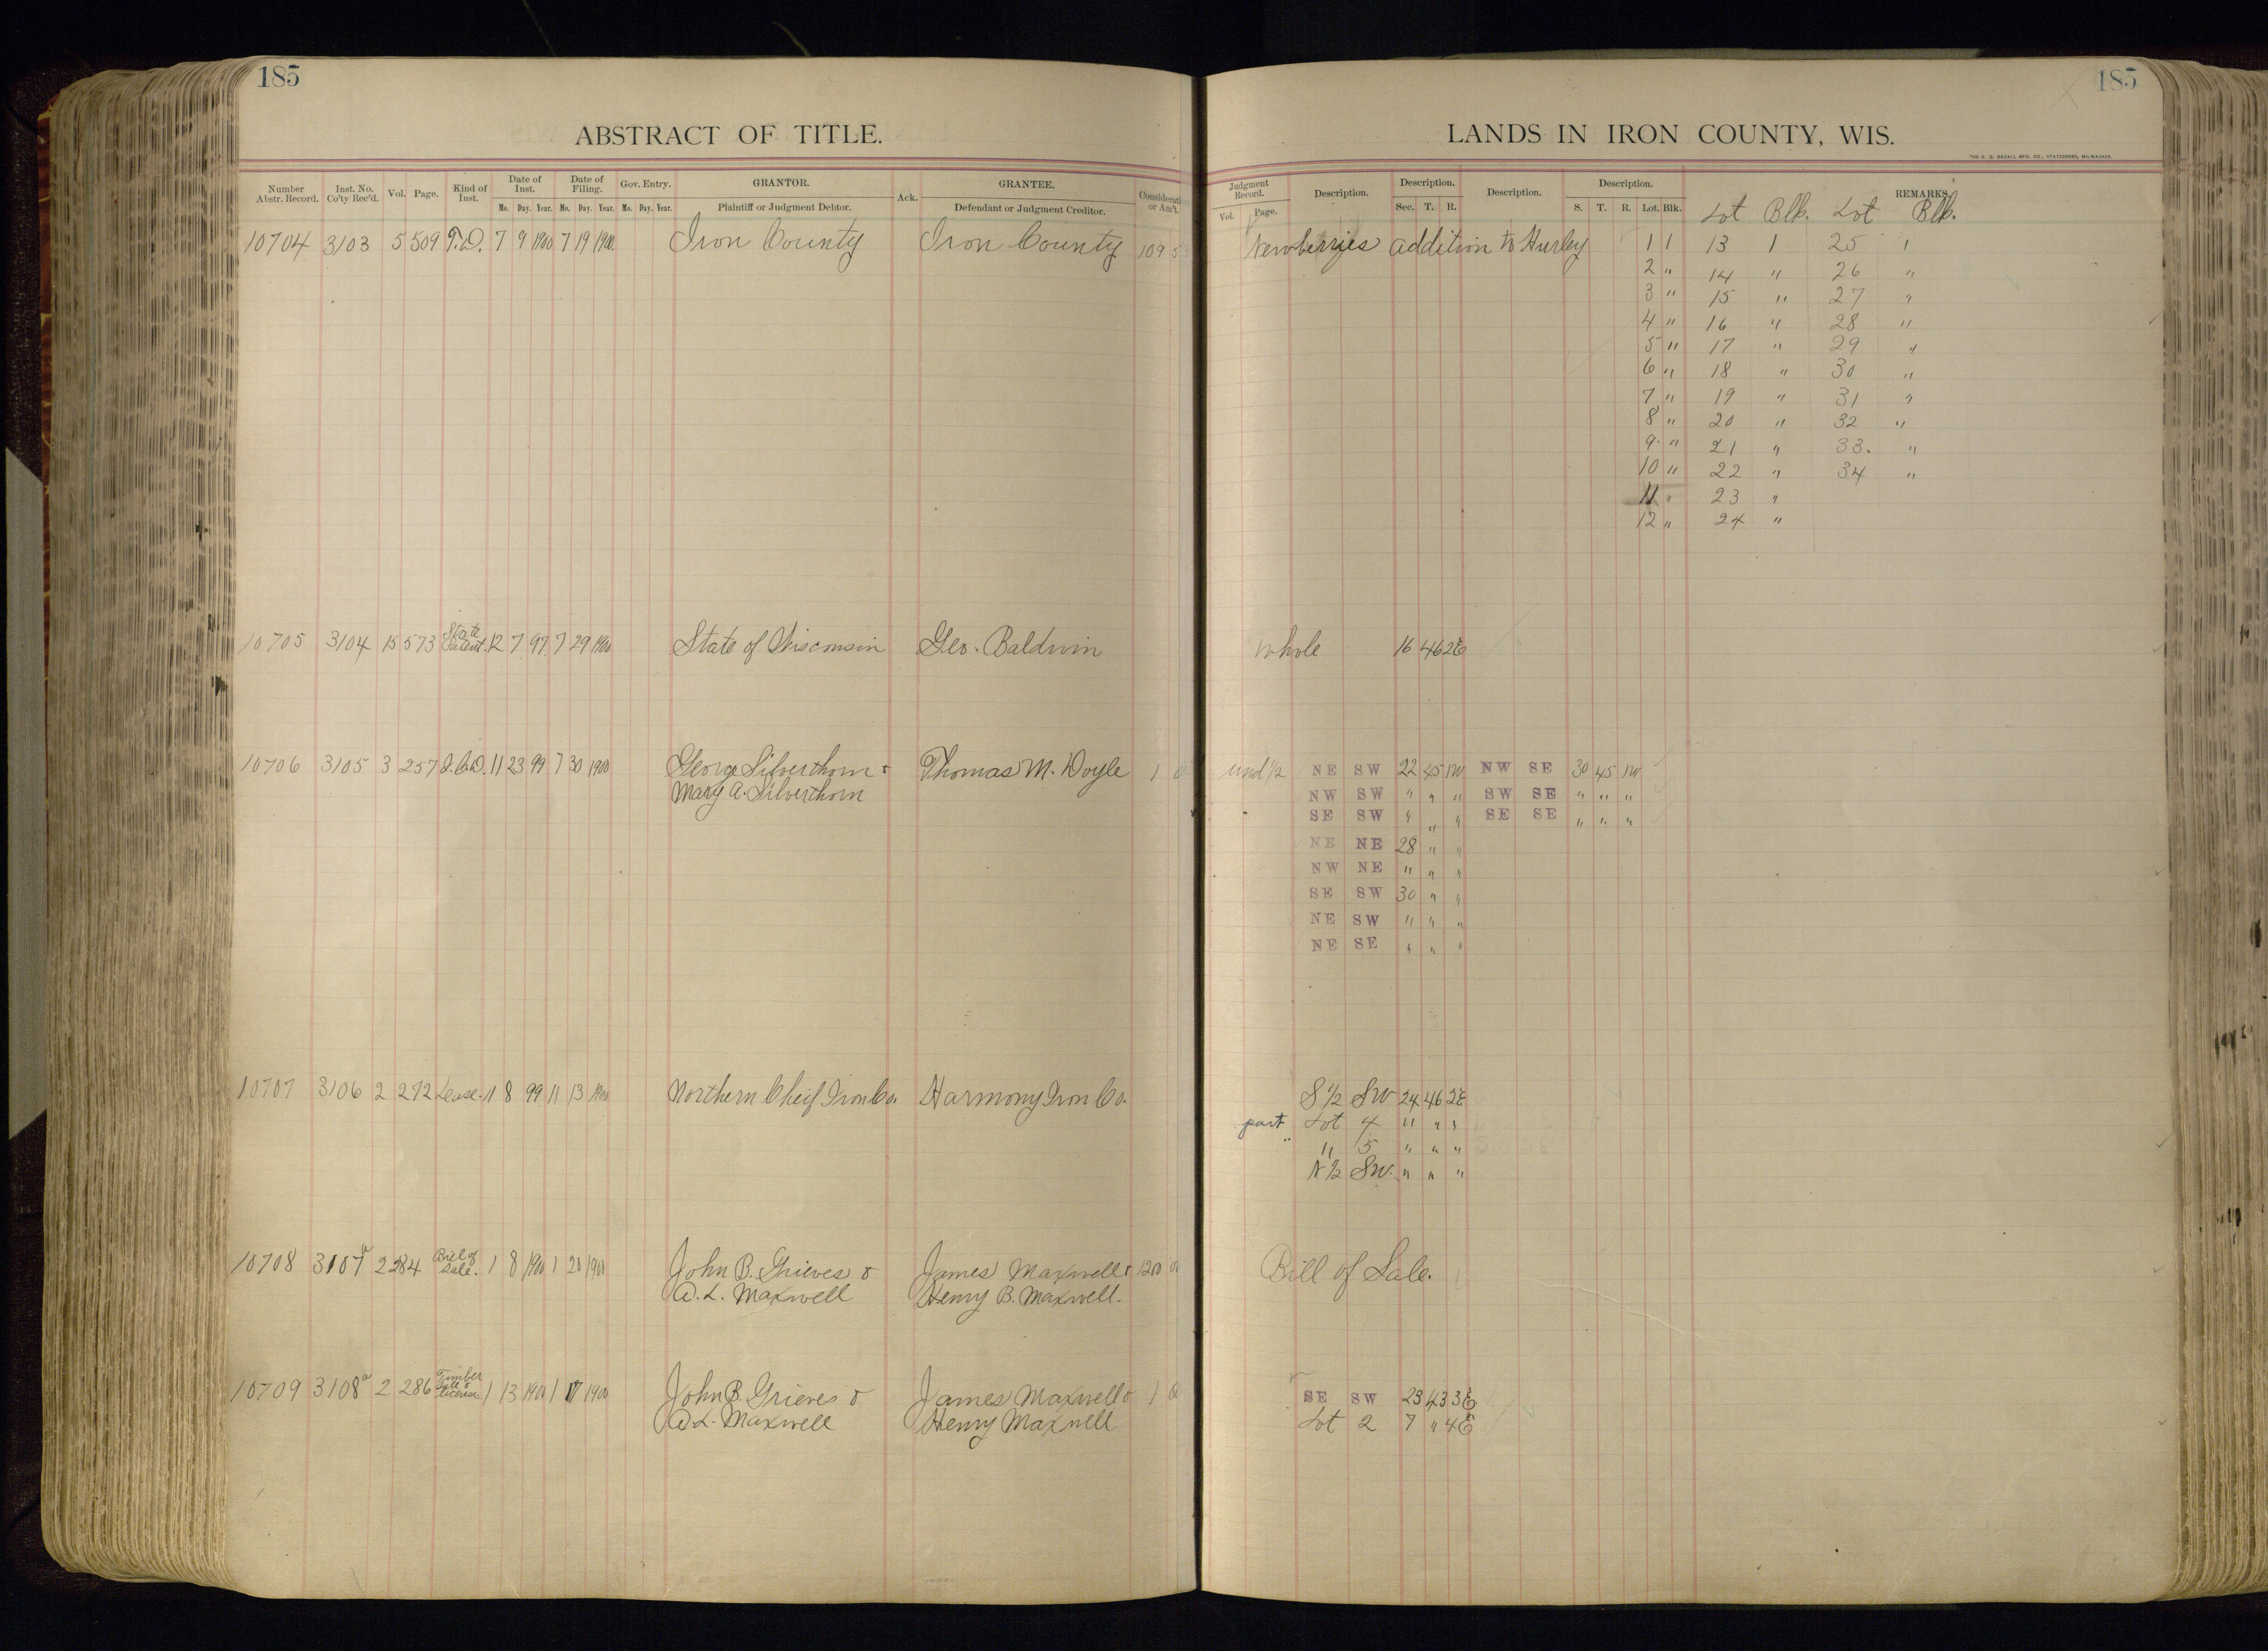 185
185
ABSTRACT OF TITLE.
LANDS IN IRON COUNTY, WIS.
THE H. G. RAZALL MFG. CO., STATIONERS, MILWAUKEE.
Number Abstr. Record. Inst. No. Co'ty Rec'd. Vol. Page. Kind of Inst. Date of Inst. Date of Filing. Gov. Entry. GRANTOR. Ack. GRANTEE. Consideration or Am't. Judgment Record. Description. Description. Description. Description. REMARKS.
Mo. Day. Year. Mo. Day. Year. Mo. Day. Year. Plaintiff or Judgment Debtor. Defendant or Judgment Creditor. Vol. Page. Sec. T. R. S. T. R. Lot. Blk. Lot Blk. Lot Blk.
10704 3103 5 509 T.D. 7 9 1900 7 19 1900 Iron County Iron County 109 5 Newberries addition to Hurley 1 1 13 1 25 1
2 " 14 " 26 "
3 " 15 " 27 "
4 " 16 " 28 "
5 " 17 " 29 "
6 " 18 " 30 "
7 " 19 " 31 "
8 " 20 " 32 "
9 " 21 " 33. "
10 " 22 " 34 "
11 " 23 "
12 " 24 "
10705 3104 15 573 State Patent. 12 7 97 7 29 1900 State of Wisconsin Geo. Baldwin Whole 16 46 2E
10706 3105 3 257 11 23 99 7 30 1900 George Silverthorn & Thomas M. Doyle 1 und 1/2 NE SW 22 45 1W NW SE 30 45 1W
Mary A. Silverthorn NW SW " " " SW SE " " "
SE SW " " " SE SE " " "
NE NE 28 " "
NW NE " " "
SE SW 30 " "
NE SW " " "
NE SE " " "
10707 3106 2 272 Lease. 11 8 99 11 13 1900 Northern Cheif Iron Co. Harmony Iron Co. S 1/2 SW 24 46 2E
part Lot 4 " " "
" " 5 " " "
N 1/2 SW. " " "
10708 3107a 2 284 Bill of Sale. 1 8 1900 1 20 1900 John B. Grieves & James Maxwell & 1200 00 Bill of Sale.
D. L. Maxwell Henry B. Maxwell.
10709 3108a 2 286 Timber License 1 13 1900 1 17 1900 John B. Grieves & James Maxwell & 1 00 SE SW 23 43 3E
D. L. Maxwell Henry Maxwell Lot 2 7 " 4E